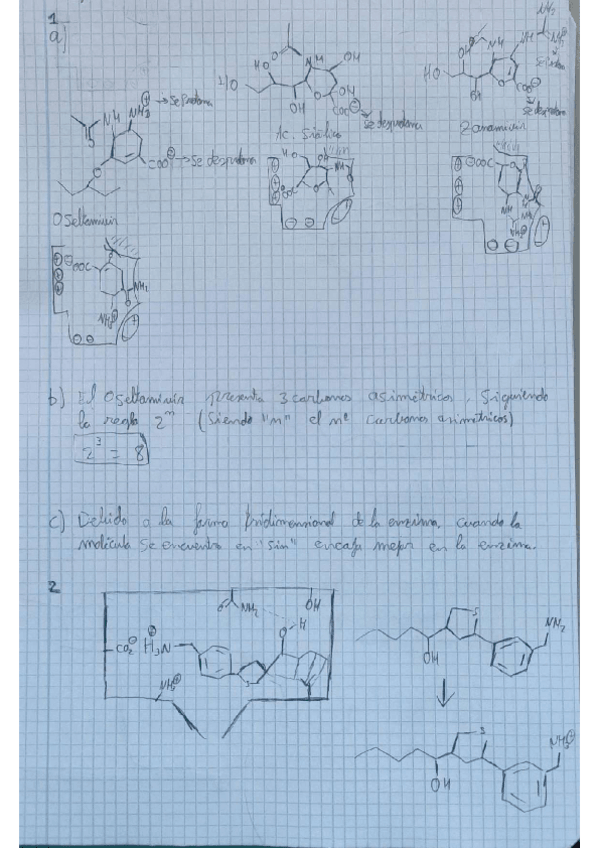 1
a)
NH NH3 ⊕ → Se protona
S
COO⊖ → Se desprotona
O
Oseltamivir
HO O N OH
HO OH OH COO⊖
Se desprotona
Ac. Siálico
NH2
NH NH2⊕
Se protona
OH
HO OH O COO⊖
Se desprotona
Zanamivir
⊕ ⊕ ⊕ ⊖OOC NH2 O NH3⊕ ⊖ ⊖ ⊕
HO OH NH
⊕ ⊕ ⊕ ⊖OOC ⊖ ⊖ ⊕
⊕ ⊕ ⊕ ⊖OOC O NH NH ⊖ ⊖ ⊕
b) El Oseltamivir presenta 3 carbonos asimétricos, Siguiendo
la regla 2ⁿ (Siendo "n" el nº carbonos asimétricos)
2³ = 8
c) Debido a la forma tridimensional de la enzima, cuando la
molécula se encuentra en "sin" encaja mejor en la enzima.
2
O NH2 OH
O H
CO2⊖ H3N⊕
S
NH3⊕
S NH2
OH
S NH3⊕
OH